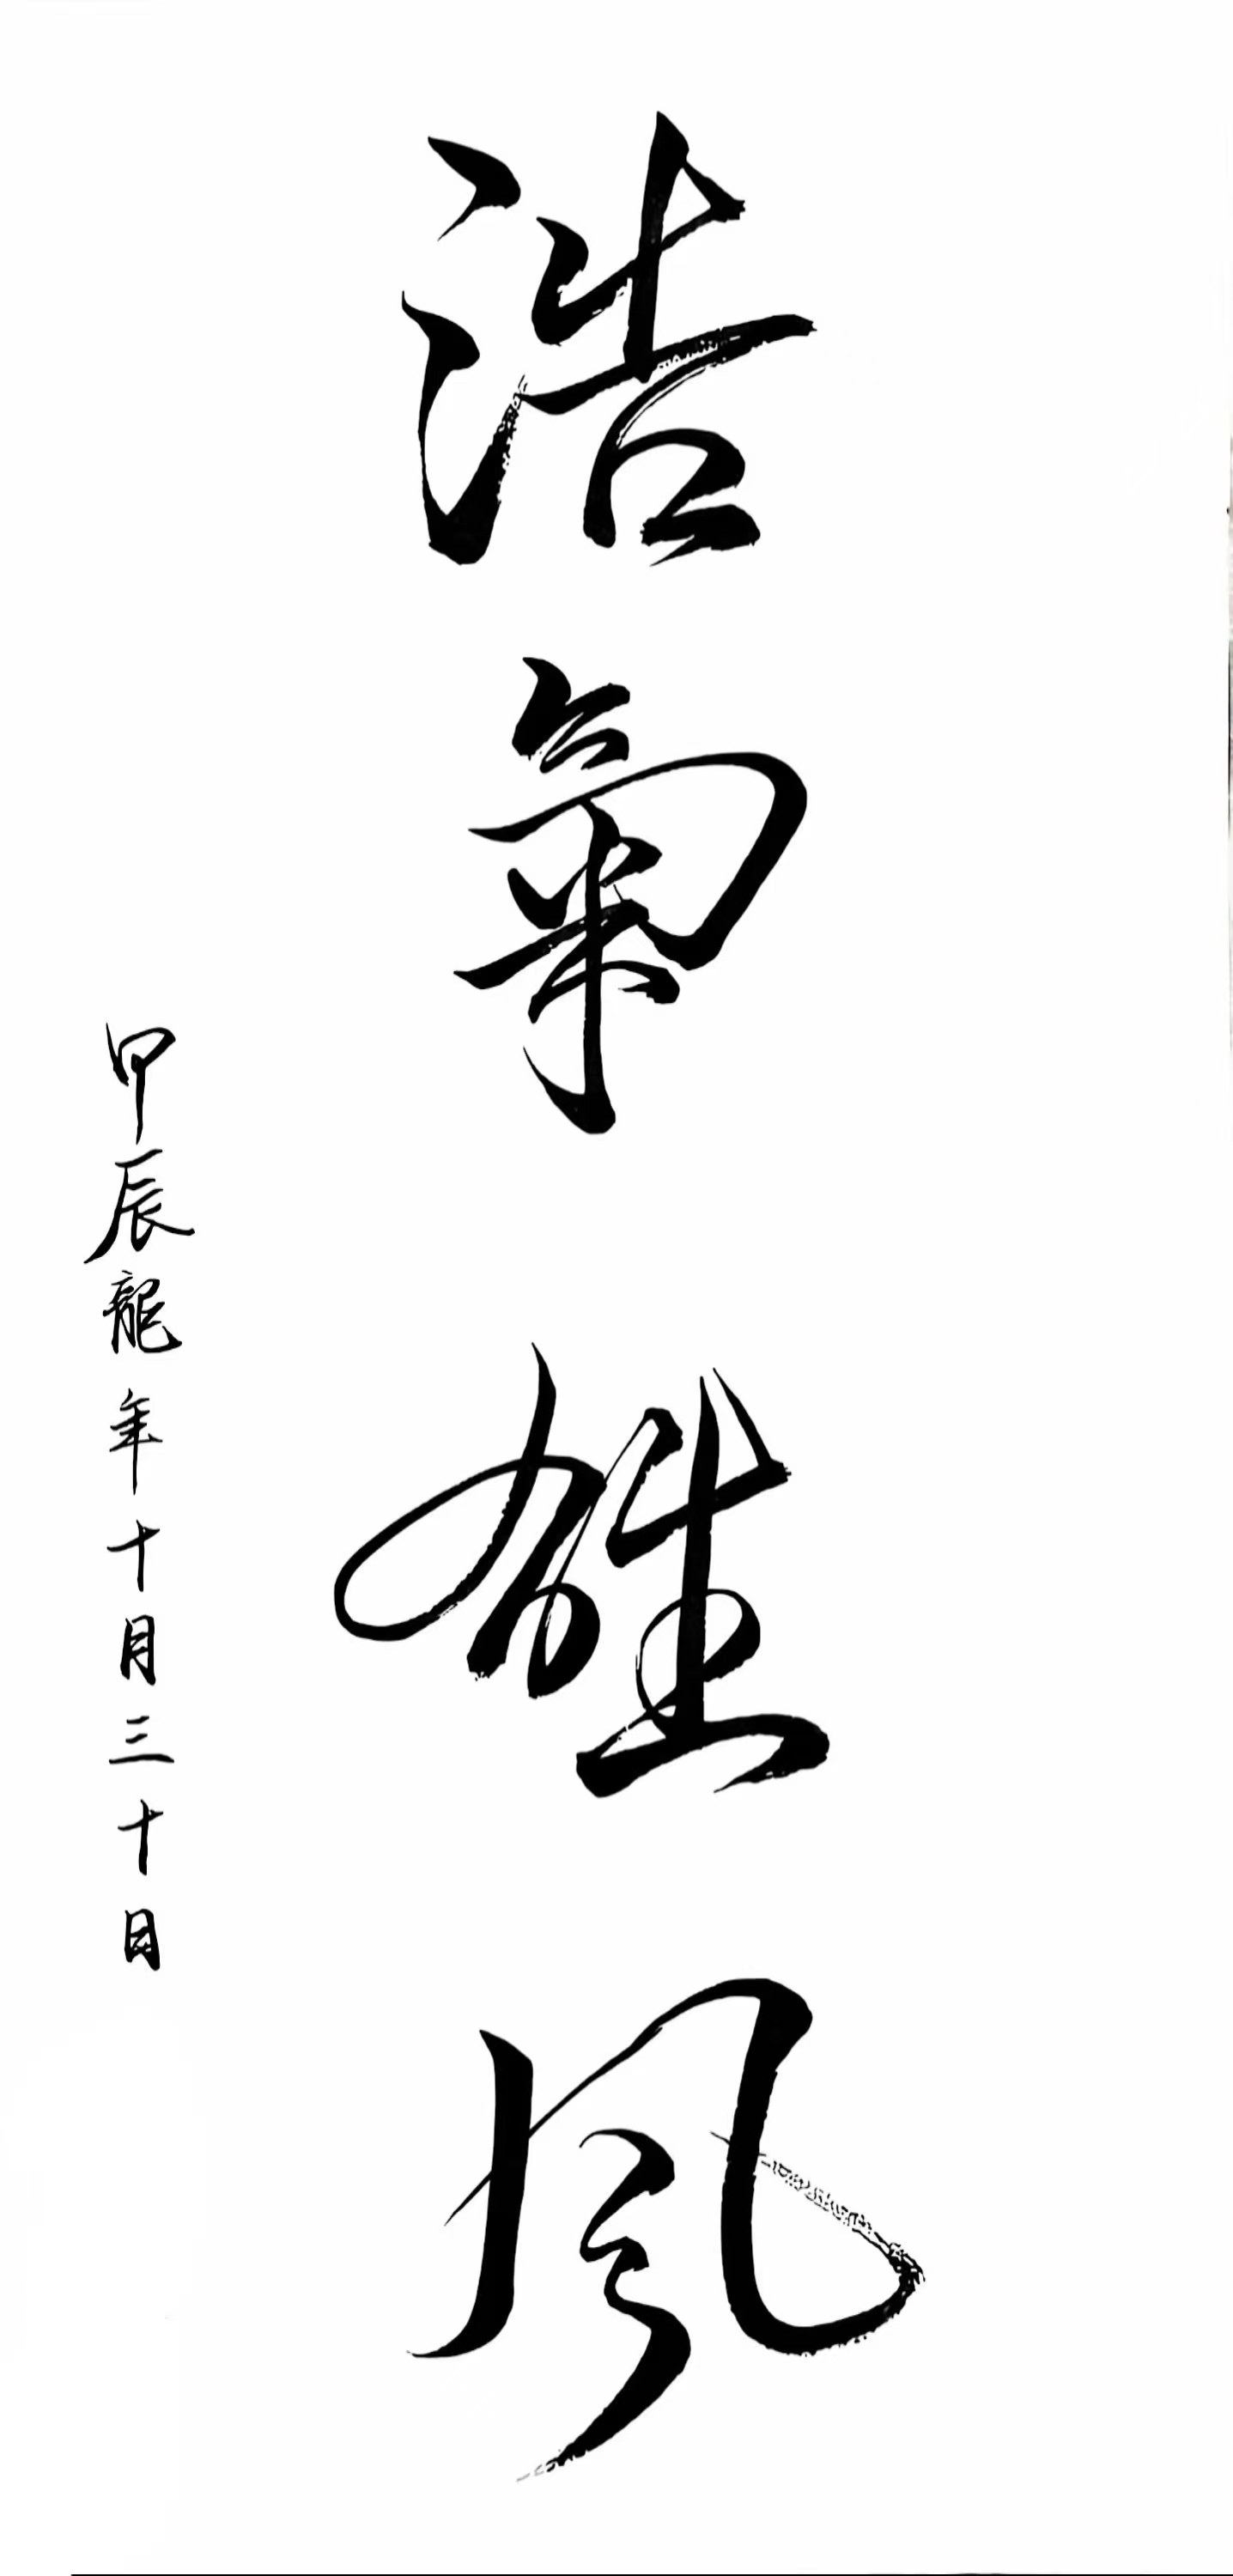 浩氣雄風
甲辰龍年十月三十日